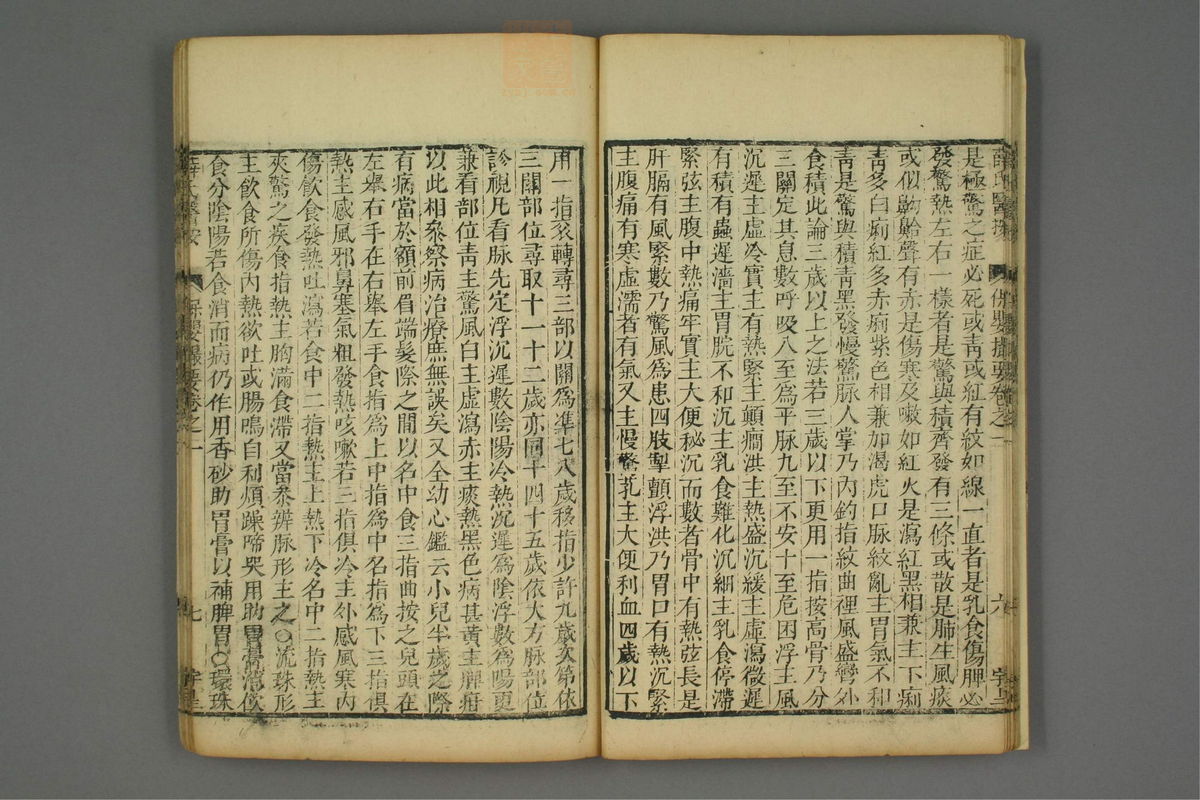 薛氏醫按 保嬰撮要卷之一 六
是極驚之症必死或青或紅有紋如線一直者是乳食傷脾必
發驚熱左右一樣者是驚與積齊發有三條或散是肺生風痰
或似齁䶎聲有赤是傷寒及嗽如紅火是瀉紅黑相兼主下痢
青多白痢紅多赤痢紫色相兼加渴虎口脉紋亂主胃氣不和
青是驚與積青黑發慢驚脉入掌乃內釣指紋曲裡風盛彎外
食積此論三歲以上之法若三歲以下更用一指按高骨乃分
三關定其息數呼吸八至為平脉九至不安十至危困浮主風
沉遲主虛冷實主有熱緊主癲癎洪主熱盛沉緩主虛瀉微遲
有積有蟲遲濇主胃脘不和沉主乳食難化沉細主乳食停滯
緊弦主腹中熱痛牢實主大便秘沉而數者骨中有熱弦長是
肝膈有風緊數乃驚風為患四肢掣顫浮洪乃胃口有熱沉緊
主腹痛有寒虛濡者有氣又主慢驚芤主大便利血四歲以下
用一指衮轉尋三部以關為準七八歲移指少許九歲次第依
三關部位尋取十一十二歲亦同十四十五歲依大方脉部位
診視凡看脉先定浮沉遲數陰陽冷熱沉遲為陰浮數為陽更
兼看部位青主驚風白主虛瀉赤主痰熱黑色病甚黃主脾疳
以此相參察病治療庶無誤矣又全幼心鑑云小兒半歲之際
有病當於額前眉端髮際之間以名中食三指曲按之兒頭在
左舉右手在右舉左手食指為上中指為中名指為下三指俱
熱主感風邪鼻塞氣粗發熱咳嗽若三指俱冷主外感風寒內
傷飲食發熱吐瀉若食中二指熱主上熱下冷名中二指熱主
夾驚之疾食指熱主胸滿食滯又當參辨脉形主之○流珠形
主飲食所傷內熱欲吐或腸鳴自利煩躁啼哭用助胃膏消飲
食分陰陽若食消而病仍作用香砂助胃膏以補脾胃○環珠
薛氏醫按 保嬰撮要卷之一 七